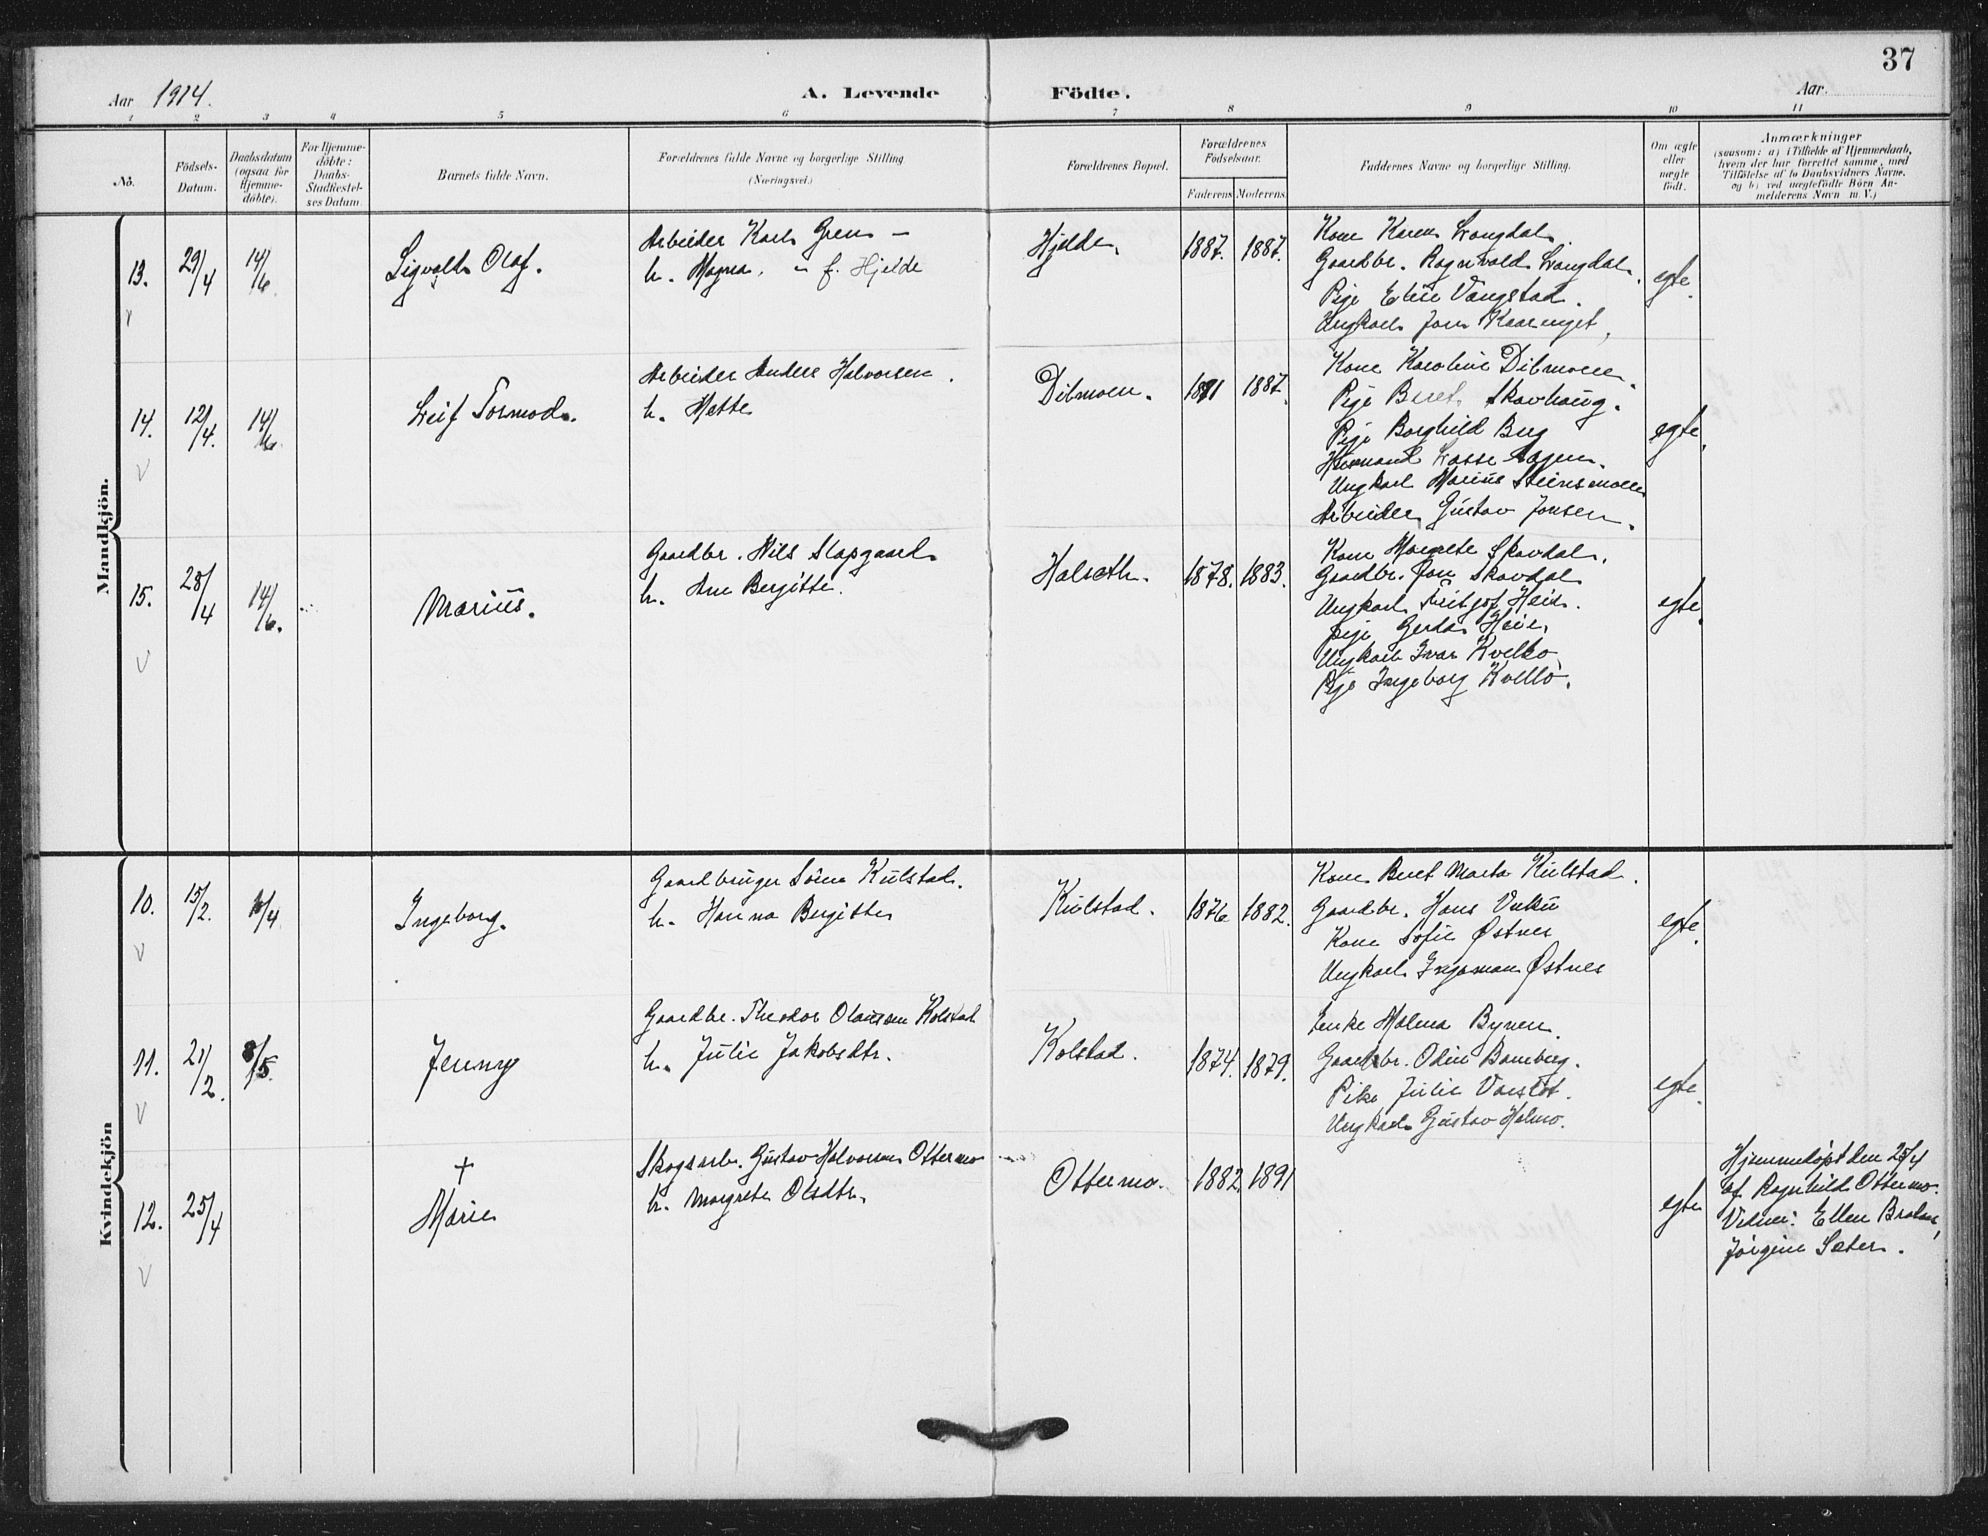 37
Aar 1914.
A. Levende Födte.
Aar.
1 2 3 4 5 6 7 8 9 10 11
No.
Födsels-Datum.
Daabsdatum (ogsaa for Hjemme-döbte).
For Hjemme-döbte: Daabs-Stadfæstel-ses Datum.
Barnets fulde Navn.
Forældrenes fulde Navne og borgerlige Stilling.
(Næringsvei.)
Forældrenes Bopæl.
Forældrenes Födselsaar.
Faderens Moderens
Faddernes Navne og borgerlige Stilling.
Om ægte eller uægte födt.
Anmærkninger
(saasom: a) i Tilfælde af Hjemmedaab, hvem der har forrettet samme, med Tilföielse af to Daabsvidners Navne, og b) ved uægtefödte Börn An-melderens Navn m. V.)
Mandkjön.
13. 29/4 14/6 Sigvald Olaf.
Arbeider Karl Gren –
h. Magna, f. Hjelde
Hjelde 1887. 1887.
Kone Karen Longdal
Gaardbr. Ragnvald Longdal
Pige Elin Vangstad.
Ungkarl Jon Kaarenget,
egte.
14. 12/4. 14/6 Leif Tormod.
Arbeider Anders Halvorsen.
h. Mette
Dilmoen. 1881 1887.
Kone Karoline Dilmoen.
Pige Beret Skovhaug.
Pige Borghild Berg
Lasse
Ungkarl Marius Steinsmoen
Arbeider Gustav Jonsen.
egte.
15. 28/4 14/6. Marius.
Gaardbr. Nils Slapgaard
h. Ane Bergitte.
Halseth. 1878. 1883.
Kone Margrete Skavdal.
Gaardbr. Jon Skavdal
Ungkarl Fritjof Heir.
Pige Gerda Heir,
Ungkarl Ivar Kvello
Pige Ingeborg Kvello.
egte.
Kvindekjön
10. 15/2. /4 Ingeborg.
Gaardbruger Sören Kulstad.
h. Hanna Bergitte
Kulstad. 1876 1882.
Kone Beret Marta Kulstad.
Gaardbr. Hans Vuku
Kone Sofie Østnes
Ungkarl Ingeman Østnes
egte.
11. 21/2. 3/5. Jenny
Gaardbr. Theodor Olausen Kolstad
h. Julie Jakobsdtr.
Kolstad. 1874. 1879.
Enke Malena Bynen.
Gaardbr. Odin Bamberg.
Pike Julie Varslot.
Ungkarl Gustav Holmo.
egte.
12. 25/4 † Marie
Skogsarb. Gustav Halvorsen Ottermo
h. Margrete Olsdtr.
Ottermo. 1882. 1891
egte
Hjemmedøpt den 25/4
af Ragnhild Ottermo.
Vidner: Ellen
Jörgine Sæter.